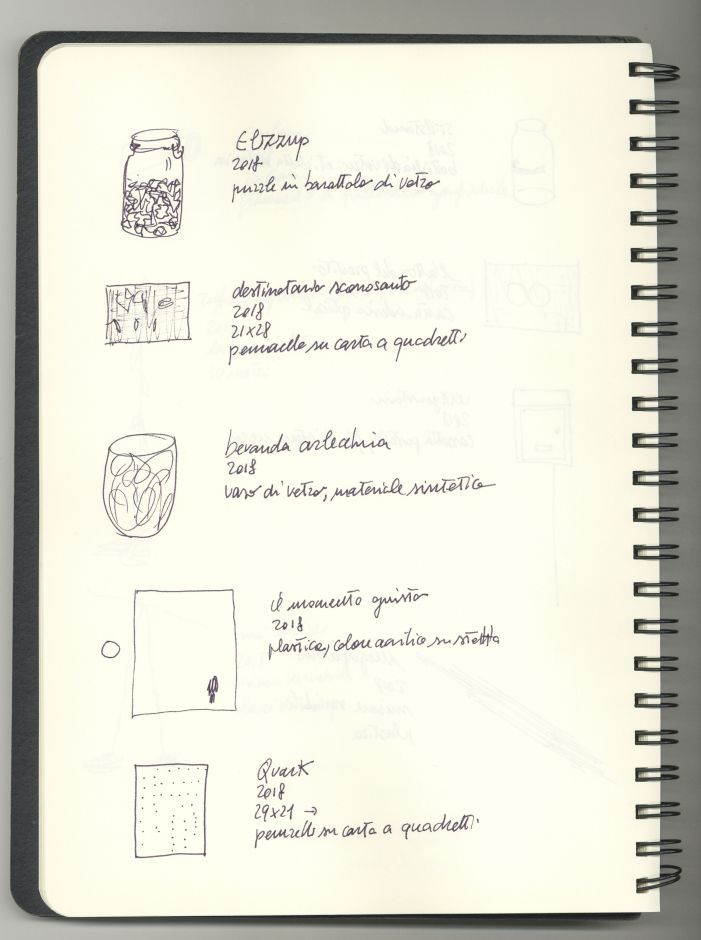 Elzzup
2018
puzzle in barattolo di vetro
destinatario sconosciuto
2018
21x28
pennarello su carta a quadretti
bevanda arlecchina
2018
vaso di vetro, materiale sintetico
il momento giusto
2018
plastica, colore acrilico su
Quark
2018
29x21 →
pennarello su carta a quadretti